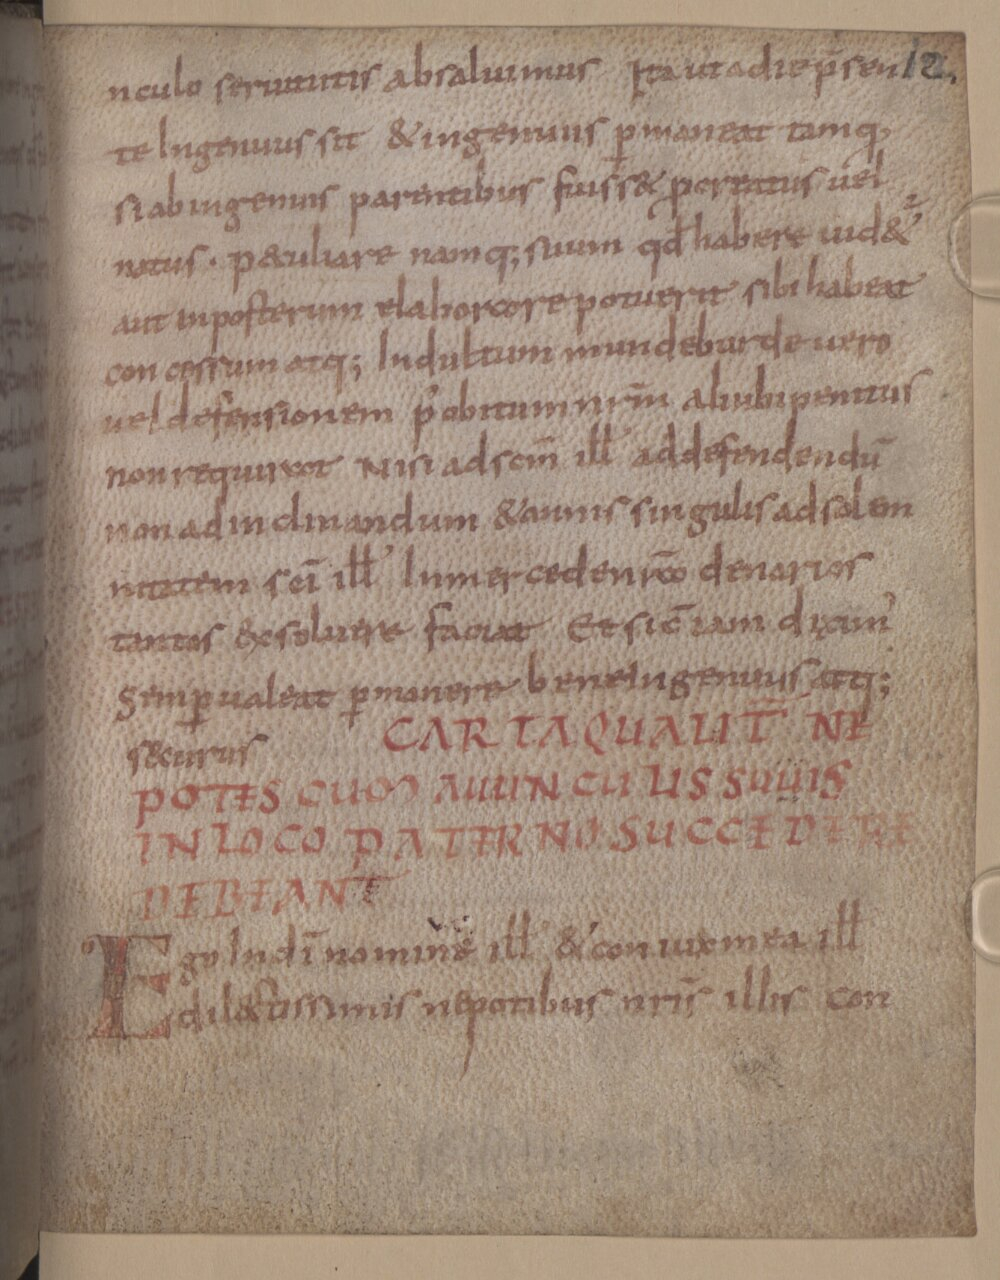 nculo seruitutis absaluimus Ita ut a die p̄sen 12.
te Ingenuus sit & ingenuus p̱maneat tamq;
si ab ingenuis parentibus fuiss& pcreatus uel
natus · p&uliare namq; suum qđ habere uid&ʳ
aut inposterum elaborare potuerit sibi habeat
concessum atq; Indultum mundeburde uero
uel defensionem p' obitum nr̄m aliubi penitus
non requirat Nisi ad sc̄m ill' ad defendendū
non ad inclinandum & annis singulis ad solem
nitatem sc̄i ill' Lumer cedenico denarios
tantos exsoluere faciat Et sic iam diximꝰ
Semp̱ ualeat p̱manere bene Ingenuus atq;
securus CARTA QUALIT̄ NE
POTES CUM AUUNCULIS SUUIS
IN LOCO PATERNO SUCCEDERE
DEBEANT
Ego In dī nomine ill' & coniux mea ill'
dilectissimis nepotibus nr̄is illis con